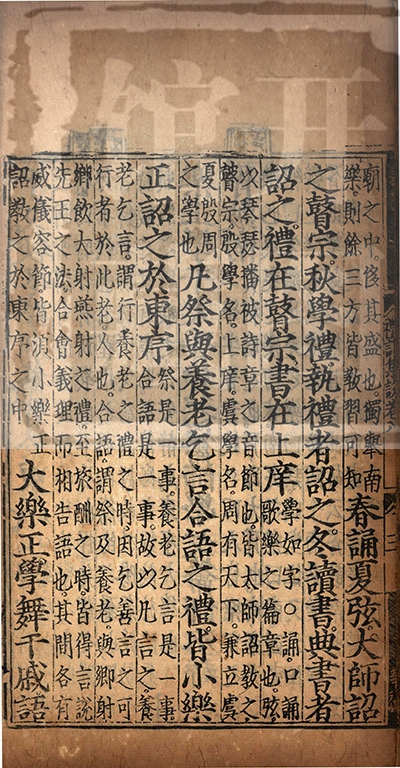 廟之中侈其盛也獨舉南
樂則餘三方皆教習可知
春誦夏弦大師詔
之瞽宗秋學禮執禮者詔之冬讀書典書者
詔之禮在瞽宗書在上庠
學如字○誦口誦
歌樂之篇章也弦
以琴瑟播被詩章之音節也皆太師詔教之
瞽宗殷學名上庠虞學名周有天下兼立虞
夏殷周
之學也
凡祭與養老乞言合語之禮皆小樂
正詔之於東序
祭是一事養老乞言是一事
合語是一事故以凡言之養
老乞言謂行養老之禮之時因乞善言之可
行者於此老人也合語謂祭及養老與鄉射
鄉飲大射燕射之禮至旅酬之時皆得言說
先王之法合會義理而相告語也其間各有
威儀容節皆須小樂正
詔教之於東序之中
大樂正學舞干戚語